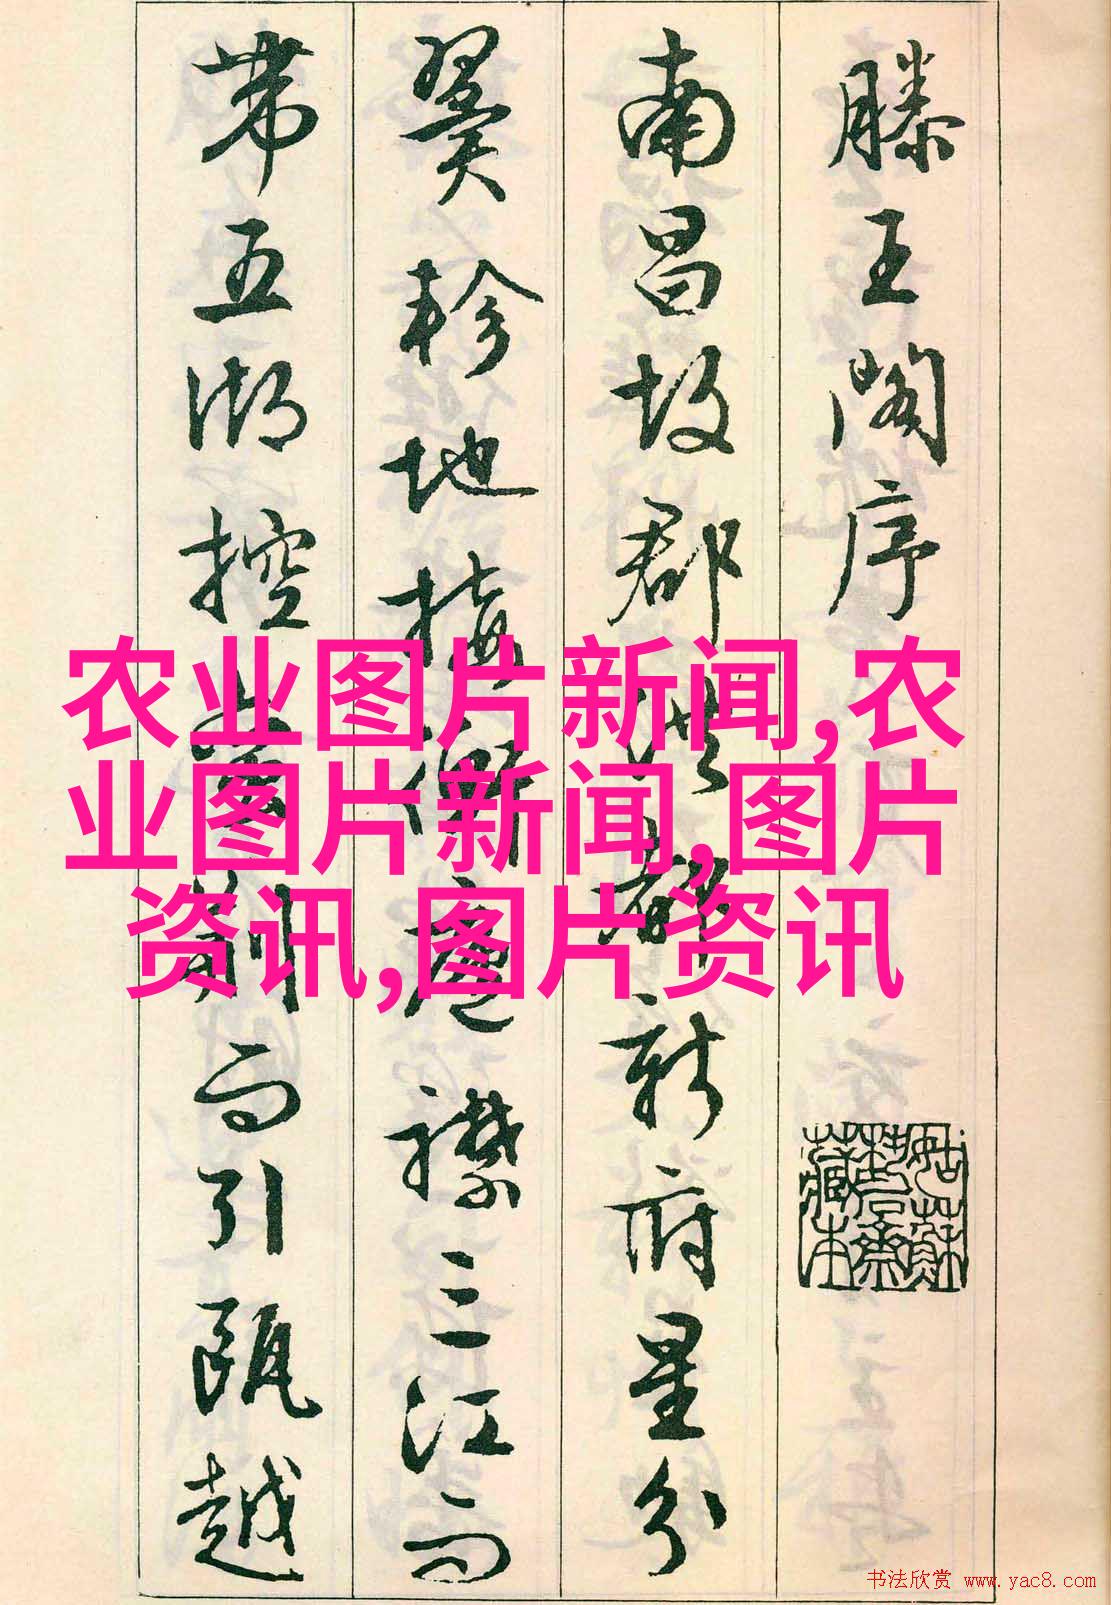 滕王閣序
南昌故郡洪都新府星分
翼軫地接衡廬襟三江而
帶五湖控蠻荊而引甌越
农业图片新闻,农
业图片新闻,图片
资讯,图片资讯
书法欣赏 www.yac8.com